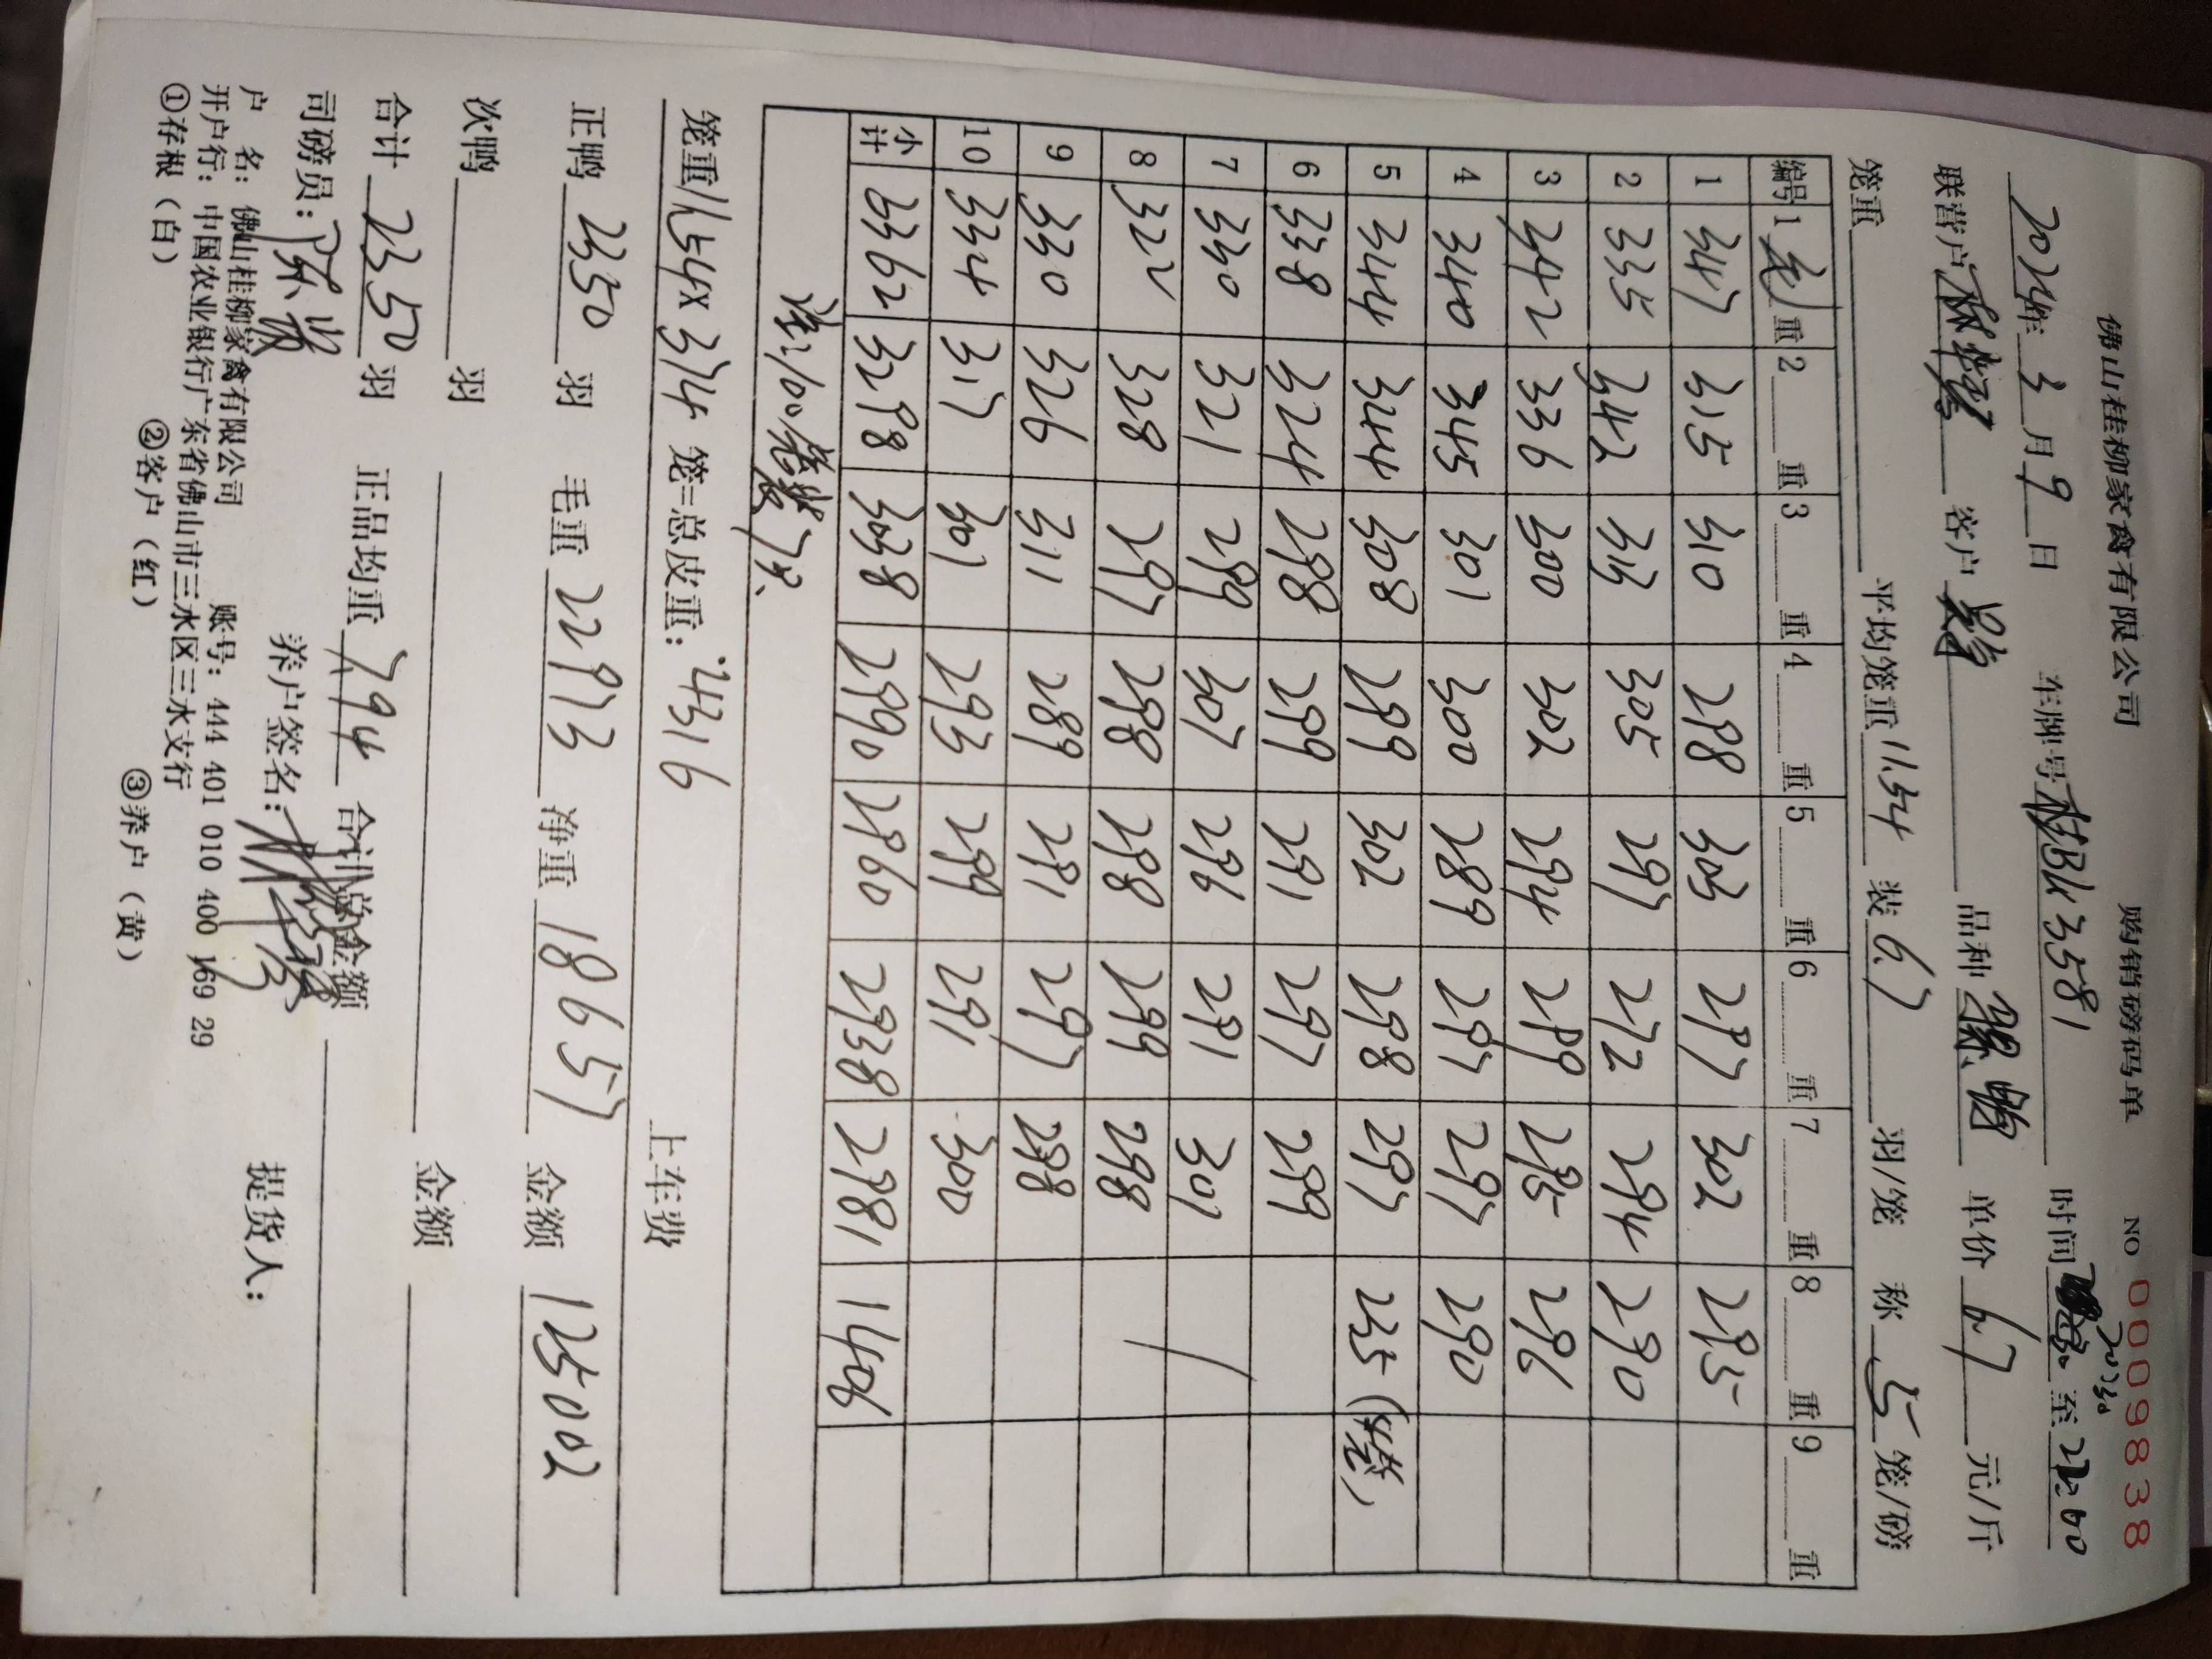 佛山桂柳家禽有限公司 购销磅码单 NO 0009838
2024年 3 月 9 日 车牌号 桂BK3581 时间 20:30 至 22:00
联营户 客户 品种 单价 6.7 元/斤
笼重 平均笼重 11.54 装 6.7 羽/笼 称 5 笼/磅
编号 1 毛 重 2 重 3 重 4 重 5 重 6 重 7 重 8 重 9 重
1 347 315 310 298 303 297 302 295
2 335 342 313 305 297 272 294 290
3 342 336 300 302 294 299 295 296
4 340 345 301 300 289 297 297 290
5 344 344 308 299 302 298 297 235 (4笼)
6 338 324 298 299 291 297 299
7 330 321 299 307 296 291 301
8 322 328 297 298 298 299 298
9 330 326 311 289 291 297 298
10 334 317 301 293 299 291 300
小计 3362 3298 3038 2990 2960 2938 2981 1406
注: 100笼装7只
笼重 11.54 × 374 笼=总皮重: 4316 上车费
正鸭 2350 羽 毛重 22973 净重 18657 金额 125002
次鸭 羽 金额
合计 2350 羽 正品均重 7.94 合计总金额
司磅员: 养户签名: 提货人:
户 名: 佛山桂柳家禽有限公司 账号: 444 401 010 400 169 29
开户行: 中国农业银行广东省佛山市三水区三水支行
①存根(白) ②客户(红) ③养户(黄)